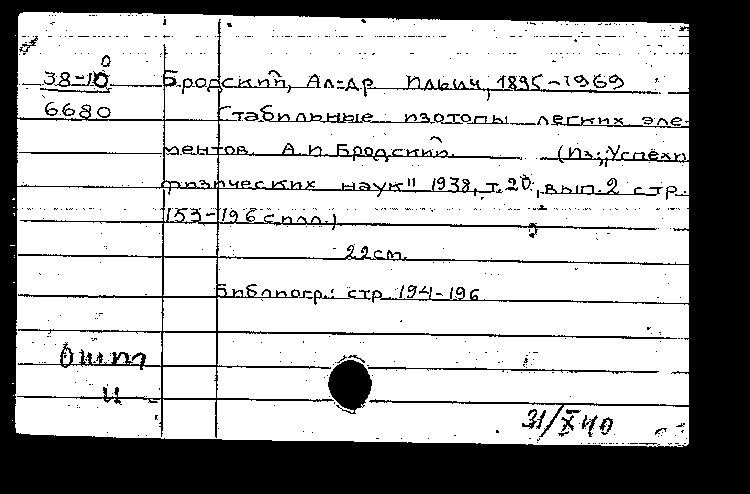 38-10 Бродский, Ал-др Ильич, 1895-1969
6680 Стабильные изотопы легких эле-
ментов. А.И. Бродский. (Из: „Успехи
физических наук" 1938, т. 20, вып. 2 стр.
153-196 с илл.)
22 см.
Библиогр.: стр. 194-196
Отт
и
31/X 40